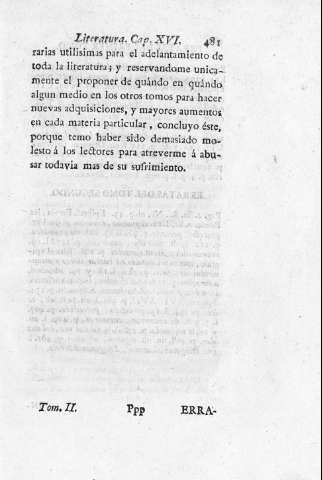 Literatura. Cap. XVI. 481
rarias utilisimas para el adelantamiento de
toda la literatura; y reservandome unica-
mente el proponer de quándo en quándo
algun medio en los otros tomos para hacer
nuevas adquisiciones, y mayores aumentos
en cada materia particular, concluyo éste,
porque temo haber sido demasiado mo-
lesto á los lectores para atreverme á abu-
sar todavia mas de su sufrimiento.
Tom. II. Ppp ERRA-